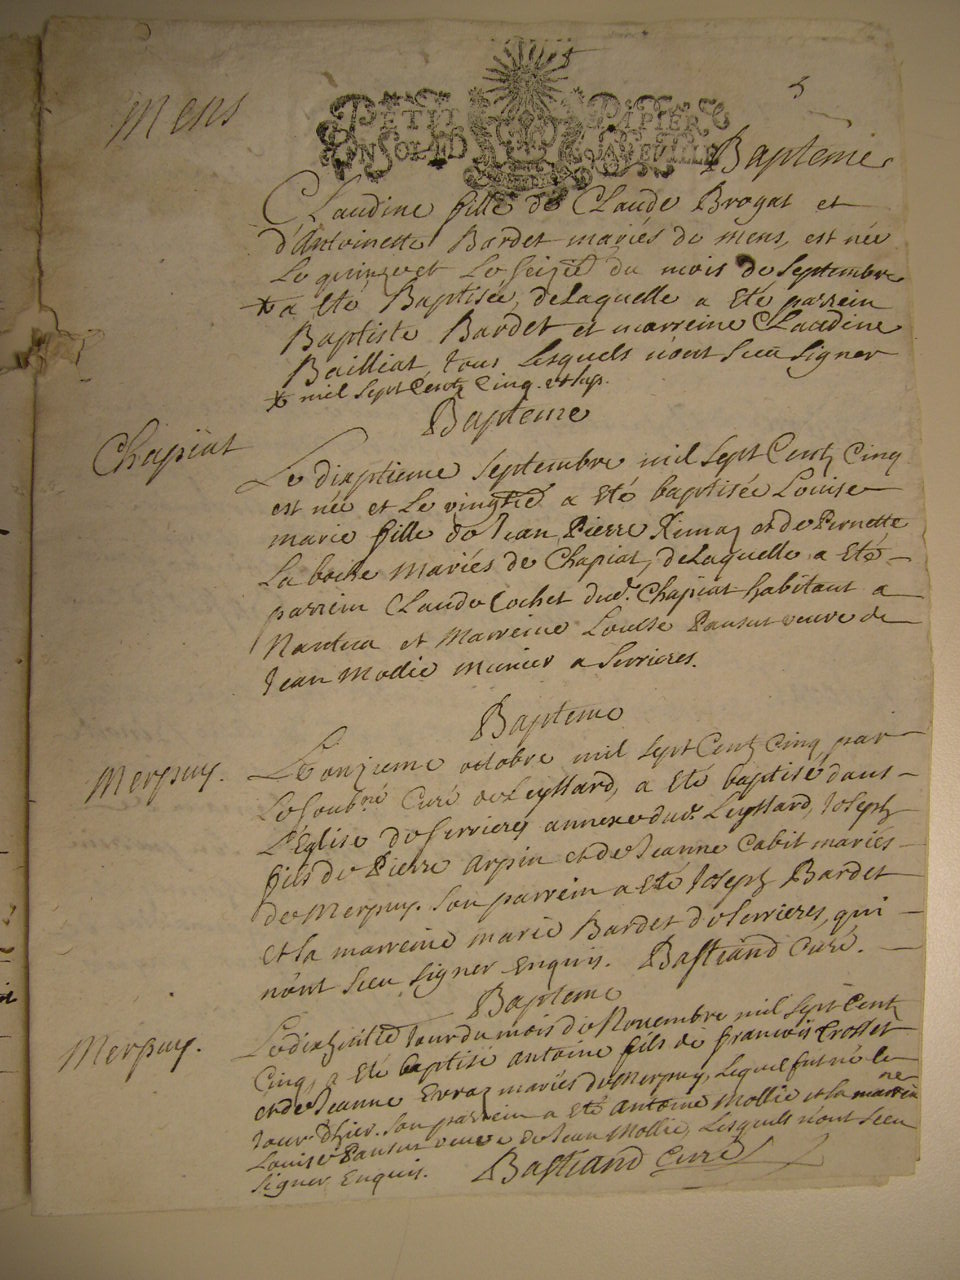 5
Mens
PETIT PAPIER
UN SOL LA FEUILLE
Bapteme
Claudine fille de Claude Brogat et
d'Antoinette Bardet mariés de mens, est née
Le quinze et Le Seizie du mois de Septembre
x a Eté Baptisée, de Laquelle a Eté parrein
Baptiste Bardet et marreine Claudine
Bailliat, tous Lesquels n'ont Sceu Signer
x mil Sept Centz Cinq.
Bapteme
Chapiat
Le dixseptieme Septembre mil Sept Centz Cinq
est née et Le vingtie a Eté baptisée Louise
marie fille de Jean Pierre et de Pernette
La boche mariés de Chapiat, de Laquelle a Eté
parrein Claude Cochet dud. Chapiat habitant a
Nantua et Marreine Louise Pansut veuve de
Jean Mollie munier a Serrieres.
Bapteme
Merpuy.
Le onzieme octobre mil Sept Centz Cinq par
Le Soubné Curé de Leyssard, a Eté baptisé dans
L'Eglise de Serrieres annexe dud. Leyssard, Joseph
fils de Pierre Arpin et de Jeanne Cabit mariés
de Merpuy. Son parrein a Eté Joseph Bardet
et la marreine marie Bardet de Serrieres, qui
n'ont Sceu Signer Enquis. Bastiand Curé.
Bapteme
Merpuy.
Le dixhuitie Jour du mois de Novembre mil Sept Centz
Cinq, a Eté baptisé antoine fils de francois Crosset
et de Jeanne Evraz mariés de Merpuy, Lequel fut né le
Jour D'hier. Son parrein a Eté Antoine Mollie et la marreine
Louise Pansut veuve de Jean Mollie, Lesquels n'ont Sceu
Signer Enquis. Bastiand Curé